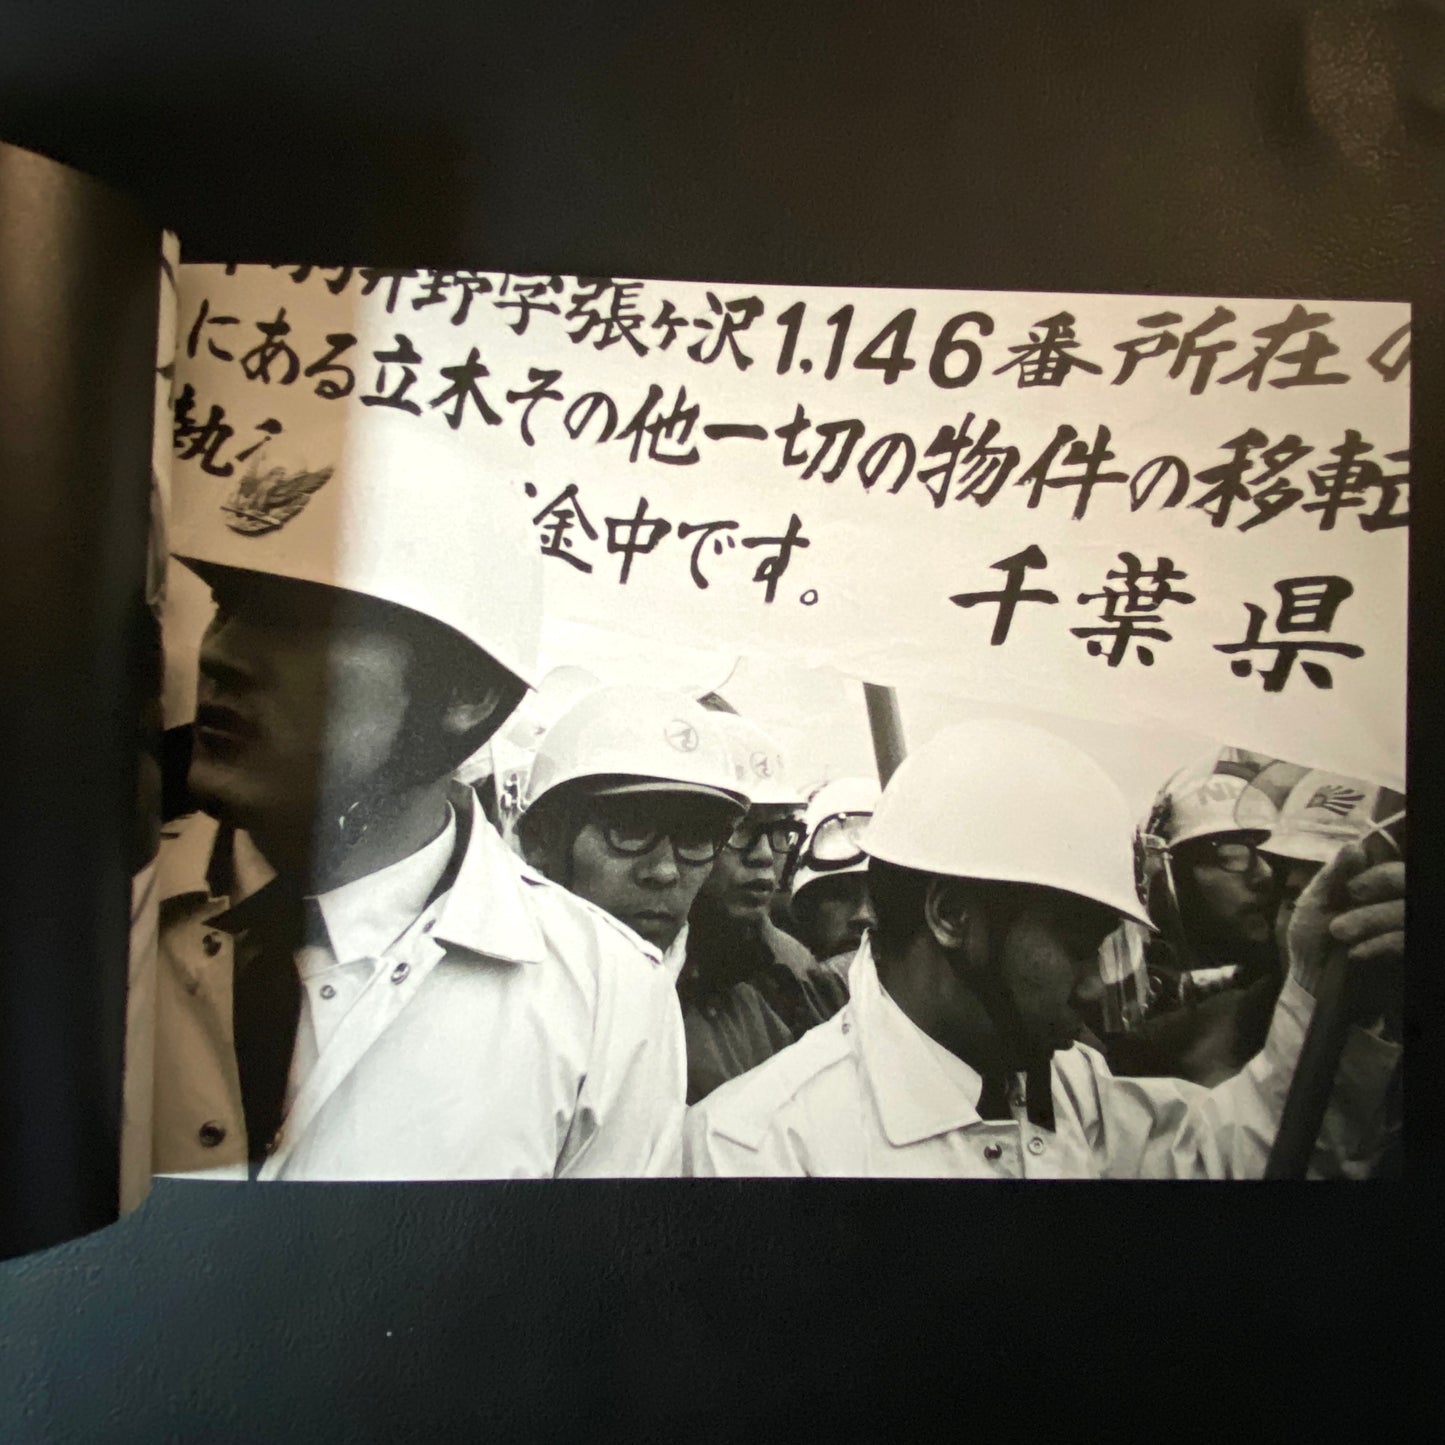 井野字張ヶ沢1.146番所在の
にある立木その他一切の物件の移転
執
途中です。
千葉県